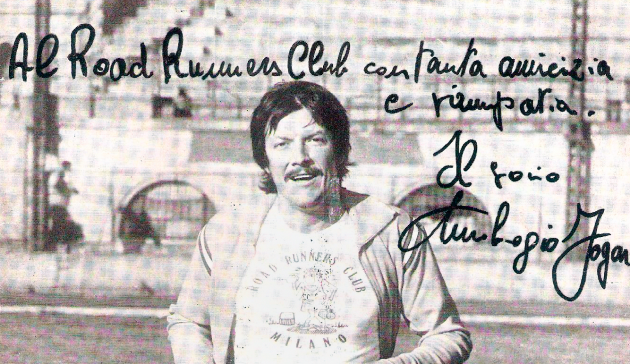 Al Road Runners Club con tanta amicizia
e simpatia.
Il socio
Ambrogio Fogar
ROAD RUNNERS CLUB
MILANO